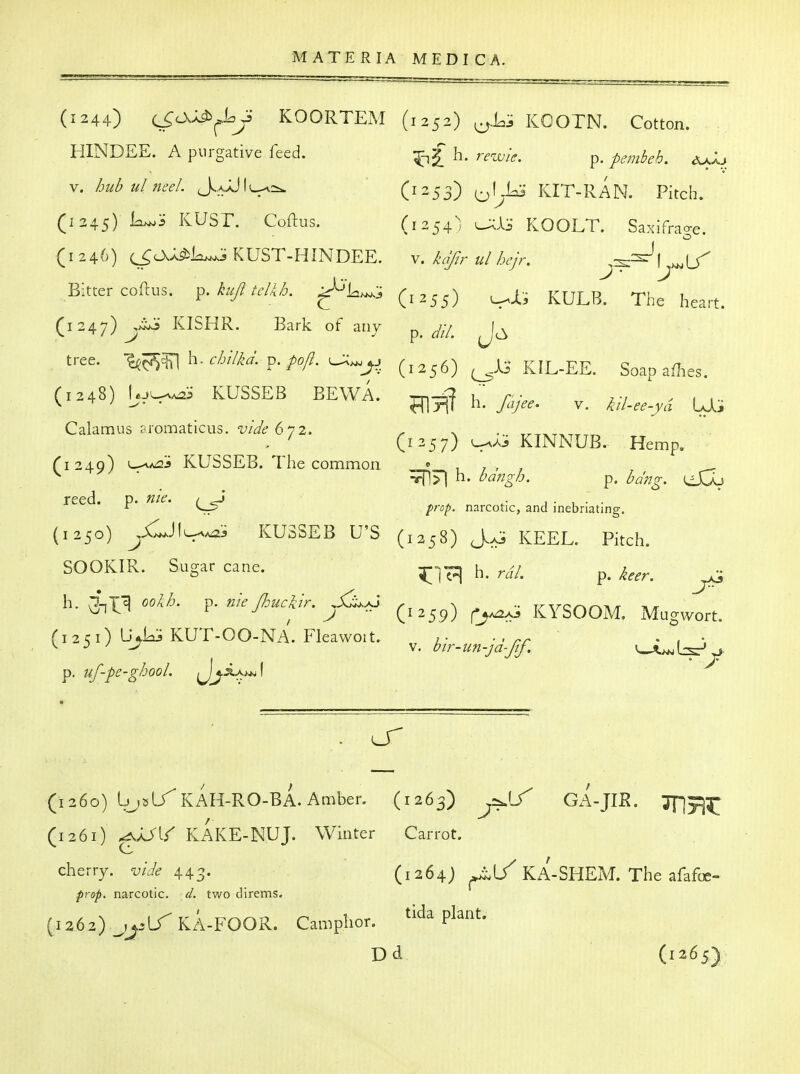 MATERIA MEDICA.
(1244) قرطم هندي KOORTEM
HINDEE. A purgative feed.
v. hub ul neel. حب النيل
(1245) قسط KUST. Coftus.
(1246) قسط هندي KUST-HINDEE.
Bitter coftus. p. kuft telkh. قسط تلخ
(1247) قشر KISHR. Bark of any
tree. h. chilka. p. poft. پوست
(1248) قصب بوا KUSSEB BEWÁ.
Calamus aromaticus. vide 672.
(1249) قصب KUSSEB. The common
reed. p. nie. ني
(1250) قصب السكر KUSSEB U'S
SOOKIR. Sugar cane.
h. ookh. p. nie fhuckir. نيشكر
(1251) قطونا KUT-OO-NÁ. Fleawort.
p. uf-pe-ghool. اسپغول
(1252) قطن KOOTN. Cotton.
h. rewie. p. pembeh. پنبه
(1253) قطران KIT-RÁN. Pitch.
(1254) قلت KOOLT. Saxifrage.
v. káfir ul hejr. كاسر الحجر
(1255) قلب KULB. The heart.
p. dil. دل
(1256) قلي KIL-EE. Soap afhes.
h. fájee. v. kil-ee-yá قليا
(1257) قنب KINNUB. Hemp.
h. bángh. p. báng. بنگ
prop. narcotic, and inebriating.
(1258) قيل KEEL. Pitch.
h. rál. p. keer. قير
(1259) قيصوم KYSOOM. Mugwort.
v. bir-un-já-fif. برنجاسف
ك
(1260) كاهربا KÁH-RO-BÁ. Amber.
(1261) كاكنج KÁKE-NUJ. Winter
cherry. vide 443.
prop. narcotic. d. two direms.
(1262) كافور KÁ-FOOR. Camphor.
(1263) گاجر GÁ-JIR. गाजर
Carrot.
(1264) كاشم KÁ-SHEM. The afafœ-
tida plant.
D d
(1265)